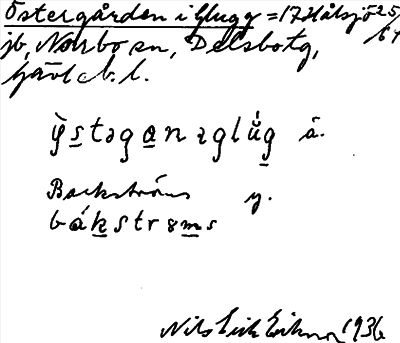 Östergården i Glugg = 17 Hålsjö 25/64
jb, Norrbo sn, Delsbo tg,
Gävleb. l.
ỳstəgɑnəglúg å.
Backströms y.
bákstrɵms
Nils Erik 1936